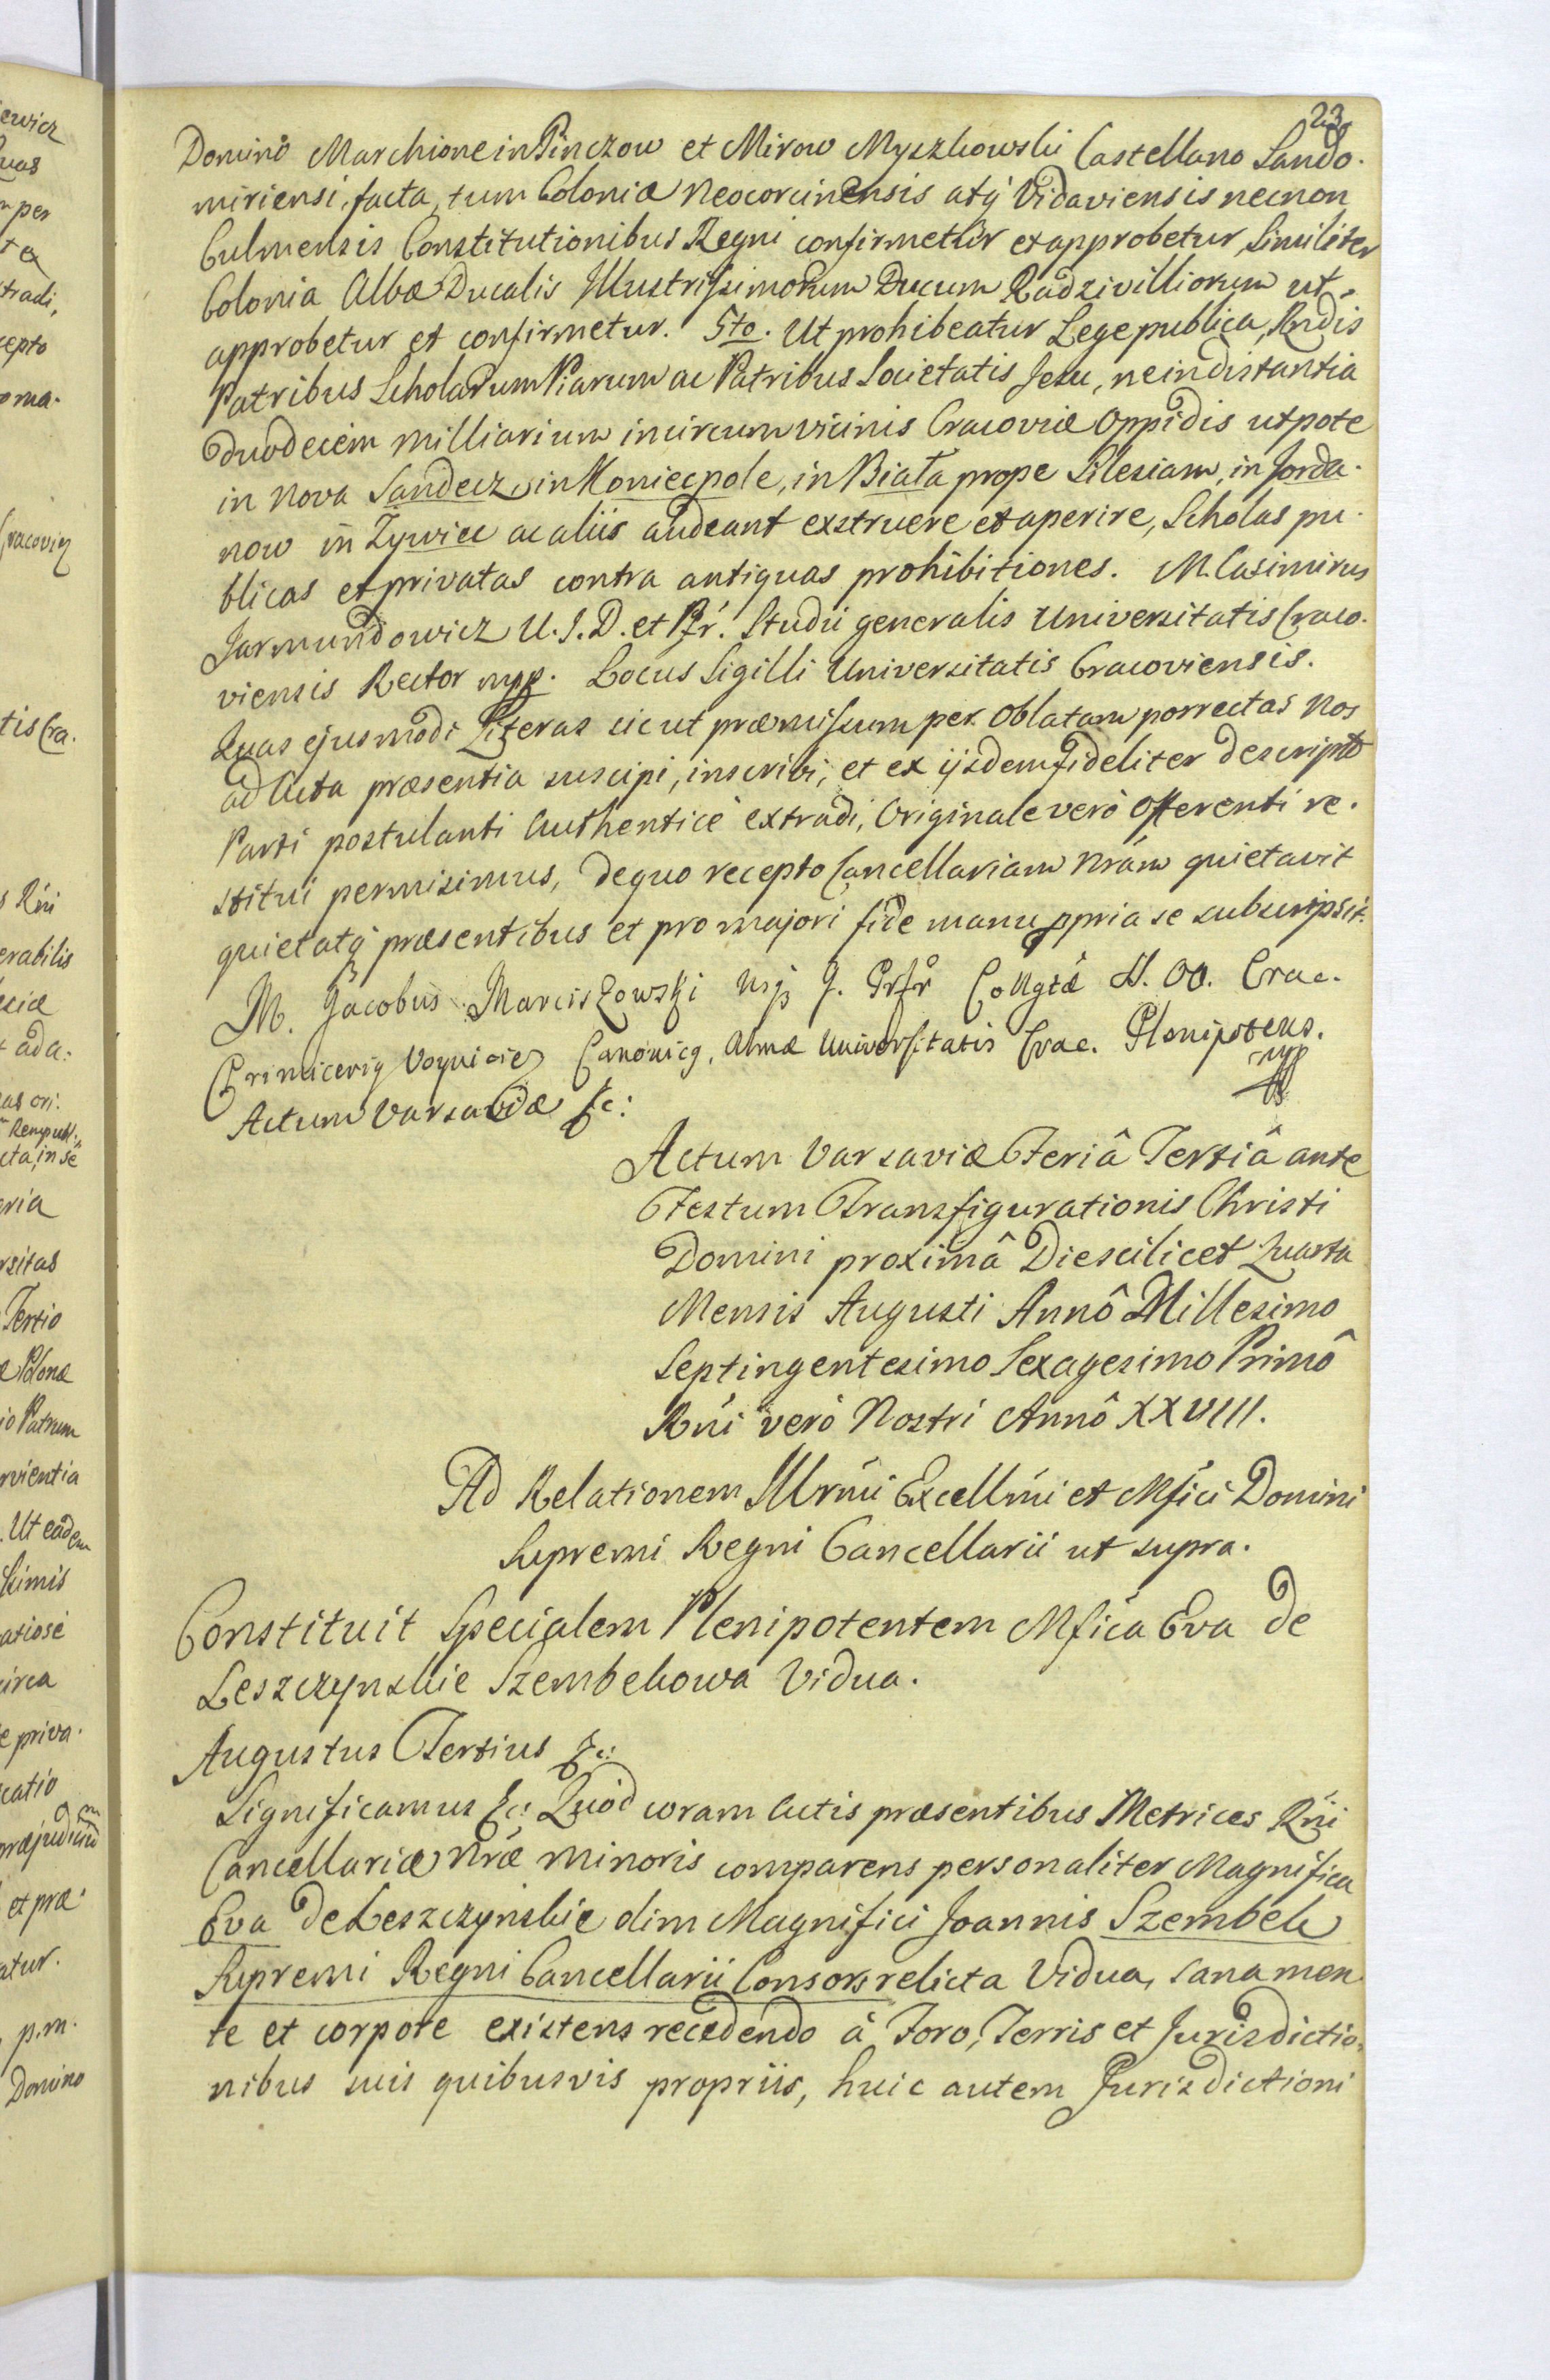 23
Dominô Marchione in Pinczow et Mirow Myszkowski Castellano Sando.
miriensi, facta, tum Coloniæ Neocorcinensis atq̃ Vidaviensis necnon
Culmensis Constitutionibus Regni confirmetur et approbetur, Similiter
Colonia Albæ Ducalis Illustrissimorum Ducum Radzivilliorum ut
approbetur et confirmetur. 5to. Ut prohibeatur Lege publica, Rndis
Patribus Scholarum Piarum ac Patribus Societatis Jesu, ne in distantia
duodecim milliarium in circumvicinis Cracoviæ Oppidis utpote
in Nova Sandecz, in Koniecpole, in Biała prope Silesiam, in Jorda.
now in Zywiec ac aliis audeant exstruere et aperire, Scholas pu.
blicas et privatas contra antiquas prohibitiones. M. Casimirus
Jarmundowicz U. J. D. et Pfr. Studii generalis Universitatis Craco.
viensis Rector mpp. Locus Sigilli Universitatis Cracoviensis.
Quas ejusmodi Literas sicut præmissum per Oblatam porrectas Nos
ad Acta præsentia suscipi, inscribi, et ex ijsdem fideliter descripto
Parti postulanti Authenticè extradi, Originale verò Offerenti re.
stitui permisimus, de quo recepto Cancellariam Nrãm quietavit
quietatq̃ præsentibus et pro majori fide manu ppria se subscripsit.
M. Jacobus Marciszowski Prfr Collgtæ OO. Crac.
Primiceriq Canonicq, Almæ Universitatis Crac. Plenipotens.
mpp
Actum Varsaviæ &c:
Actum Varsaviæ Feriâ Tertiâ ante
Festum Transfigurationis Christi
Domini proximâ Die scilicet Quarta
Mensis Augusti Annô Millesimo
Septingentesimo Sexagesimo Primô
Rni verò Nostri Annô XXVIII.
Ad Relationem Illrmi Excellmi et Mfici Domini
Supremi Regni Cancellarii ut supra.
Constituit Specialem Plenipotentem Mfica Eva de
Leszczynskie Szembekowa Vidua.
Augustus Tertius &c:
Significamus &c: Quòd coram Actis præsentibus Metrices Rni
Cancellariæ Nræ minoris comparens personaliter Magnifica
Eva de Leszczynskie olim Magnifici Joannis Szembek
Supremi Regni Cancellarii Consors relicta Vidua, sana men
te et corpore existens recedendo à Foro, Terris et Jurisdictio.
nibus suis quibusvis propriis, huic autem Jurisdictioni